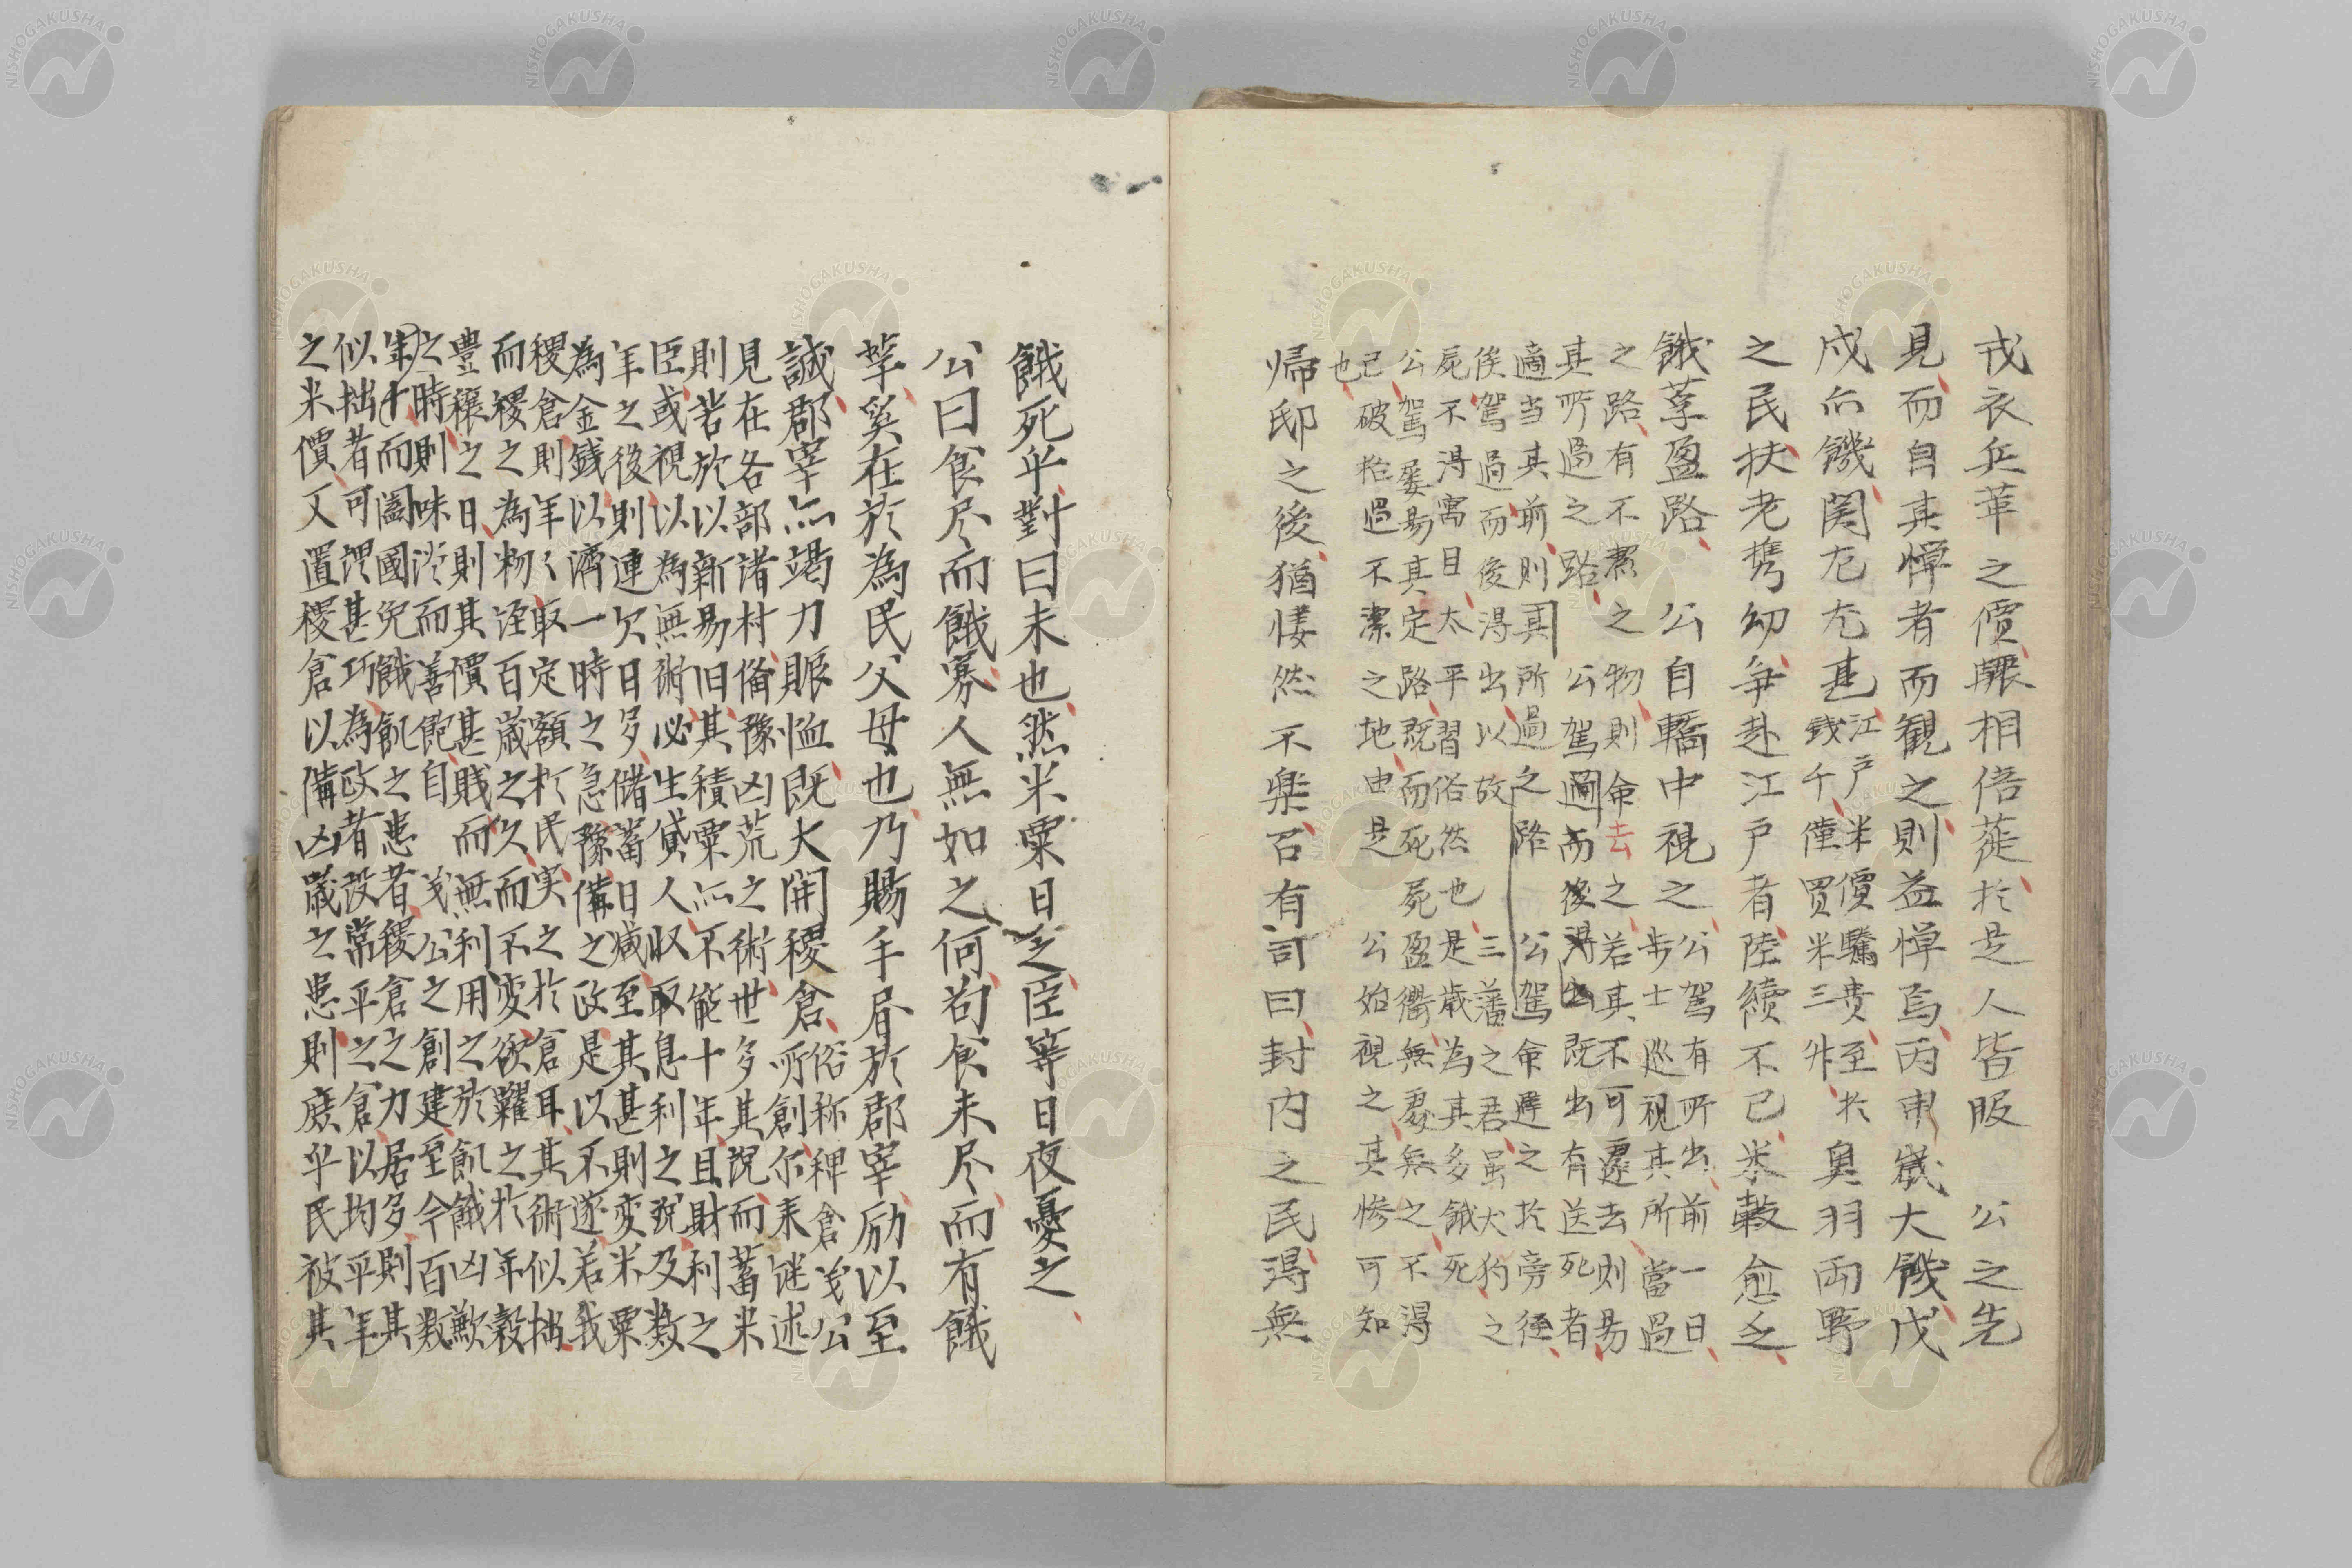 戎衣兵革之價驟相倍蓰於是人皆服　公之先
見而自其憚者而観之則益憚焉丙申歳大饑戊
戍亦饑関左尤甚江戸米價騰貴至於
錢千僅買米三升奥羽両野
之民扶老携幼争赴江戸者陸続不已米穀愈乏
餓莩盈路　公自轎中視之公駕有所出前一日
歩士巡視其所當過
之路有不潔之物則命去之若其不可遷去則易
其所過之路　公駕過而後得出既出有送死者
適当其前則其所過之路　公駕命避之於旁径
俟駕過而後得出以故　三藩之君虽犬狗之
死不得寓目太平習俗然也是歳為其多餓死
公駕屡易其定路既而死屍盈衢無處無之不得
已破格過不潔之地由是　公始視之其惨可知
也
帰邸之後猶悽然不楽召有司曰封内之民得無
餓死乎對曰未也然米粟日乏臣等日夜憂之
公曰食尽而餓寡人無如之何苟食未尽而有餓
莩奚在於為民父母也乃賜手眉於郡宰励以至
誠郡宰亦竭力賑恤既大開稷倉俗称稗倉義公
所創尓来謎述
見在各部諸村備豫凶荒之術世多其説而蓄米
則若於以新易旧其積粟亦不能十年且財利之
臣或視以為無術必生貸人収取息利之説及数
年之後則連欠日多儲蓄日减至其甚則変米粟
為金錢以済一時之急豫備之政是以不遂若我
稷倉則年々取定額於民実之於倉耳其術似拙
而稷之為物經百歳之久而不変欲糶之於年穀
豊穣之日則其價甚賎而無利用之於飢餓凶歉
之時則味淡而善飽自　義公之創建至今百数
年十而闔國免餓飢之患者稷倉之力居多則其
似拙者可謂甚巧為政者設常平之倉以均平年
之米價又置稷倉以備凶歳之患則庶乎民被其